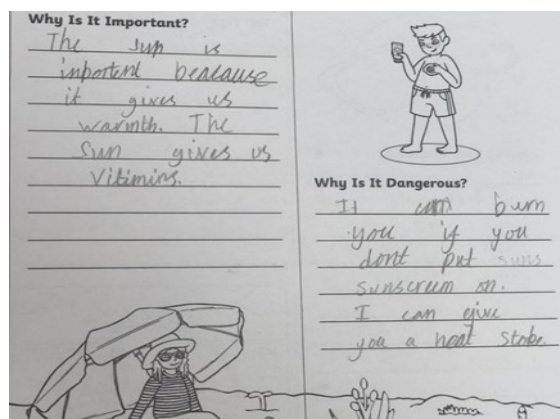 Why Is It Important?
The sun is
inportent beacause
it gives us
warmth. The
Sun gives us
Vitimins.
Why Is It Dangerous?
It can burn
you if you
dont put suns
sunscreem on.
I can give
you a heat stoke.